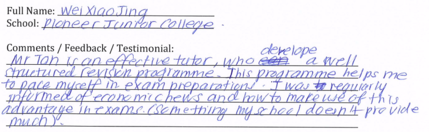 Full Name: Wei Xiao Jing
School: Pioneer Junior College.
Comments / Feedback / Testimonial:
develope
Mr Tan is an effective tutor, who a well
structured revision programme. This programme helps me
to pace myself in exam preparation. I was regularly
informed of economic news and how to make use of this
advantage in exams (something my school doesn't provide
much).